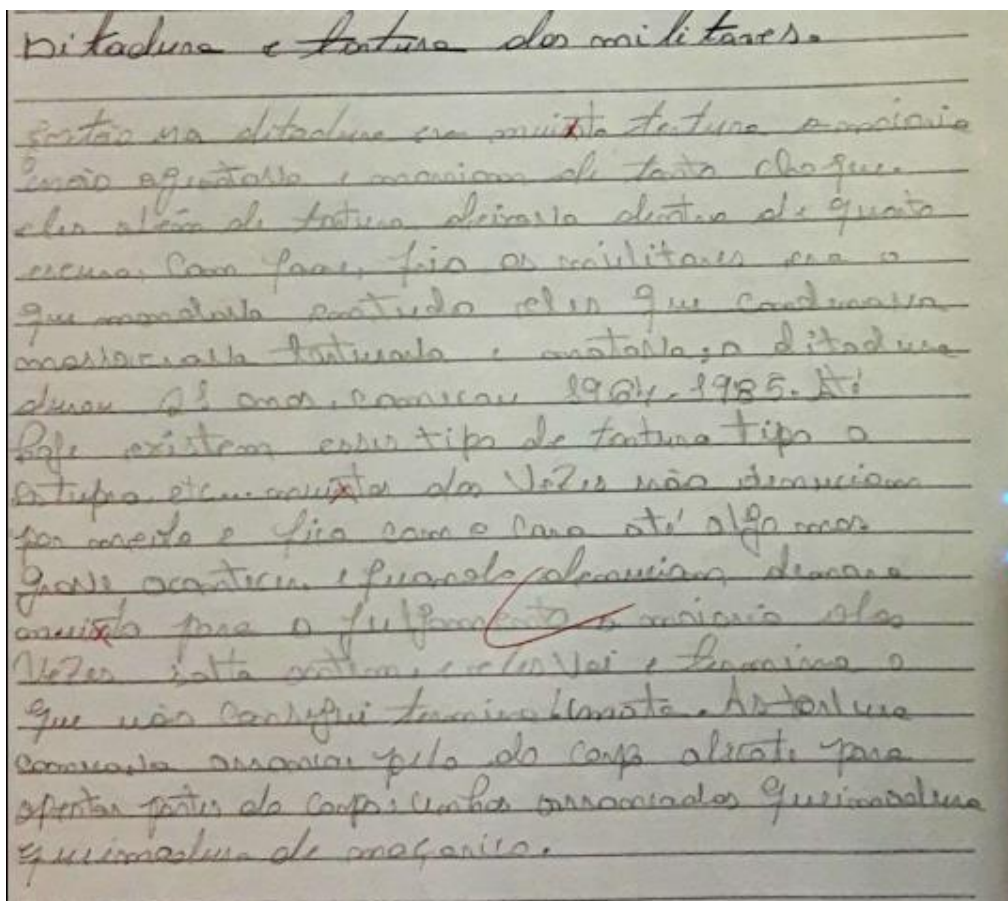 Ditadura e tortura dos militares.
Então na ditadura era muinta tortura a maioria
não aguentava e morriam de tanto choque.
eles além de tortura deixava dentro de quarto
escuro, Com fome, frio os militares era o
que mandava em tudo eles que
massacrava torturava e matava, a ditadura
durou 21 anos, comecou 1964-1985. Até
hoje existem esses tipo de tortura tipo o
estupro, etc... muintas das Vezes não denunciam
por medo e fica com o cara até algo mas
grave acontecer e quando denunciam demora
muinto para o julgamento a maioria das
Vezes solta e eles Vai e termina o
que não consegui termina (mata. As tortura
comecava arrancar pelo do corpo alicate para
apertar partes do corpo, unhas arrancadas queimadura
queimadura de maçarico.